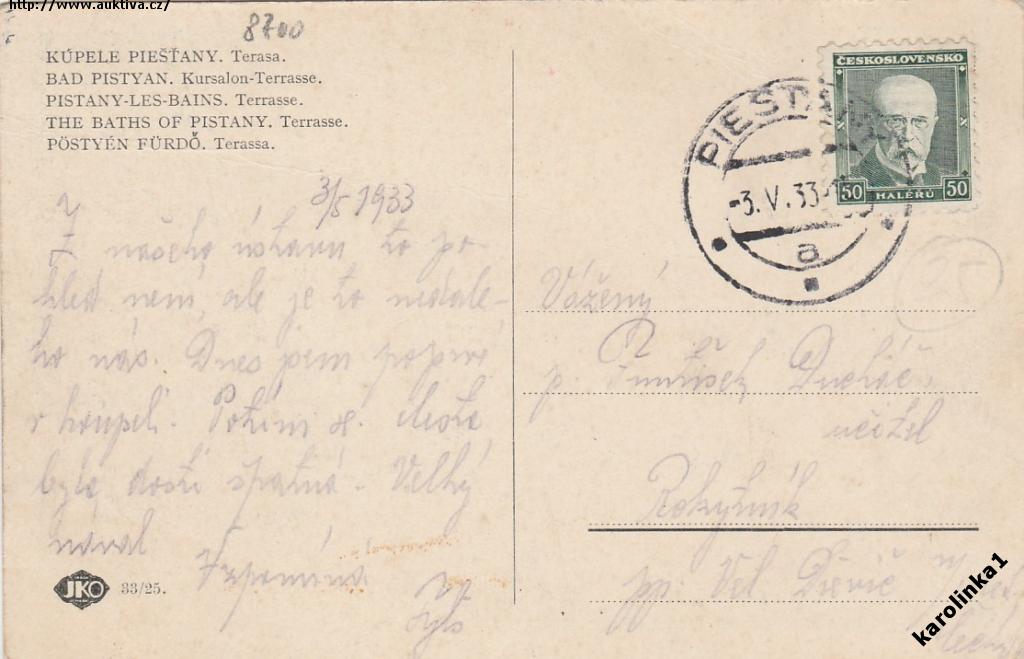 http://www.auktiva.cz/
8700
KÚPELE PIEŠŤANY. Terasa.
BAD PISTYAN. Kursalon-Terrasse.
PISTANY-LES-BAINS. Terrasse.
THE BATHS OF PISTANY. Terrasse.
PÖSTYÉN FÜRDŐ. Terassa.
ČESKOSLOVENSKO
50 HALÉŘŮ 50
PIEŠŤANY
-3.V.33
a
3/5 1933
Z našeho ústavu to po-
hled není, ale je to nedale-
ko nás. Dnes jsem poprvé
v koupeli. Potím se. Cesta
byla dosti špatná. Velký
nával
Vzpomíná
Vážený
p. František Ducháč
učitel
Rokytník
pp. Vel. Dřevíč
25
JKO 33/25.
karolinka1